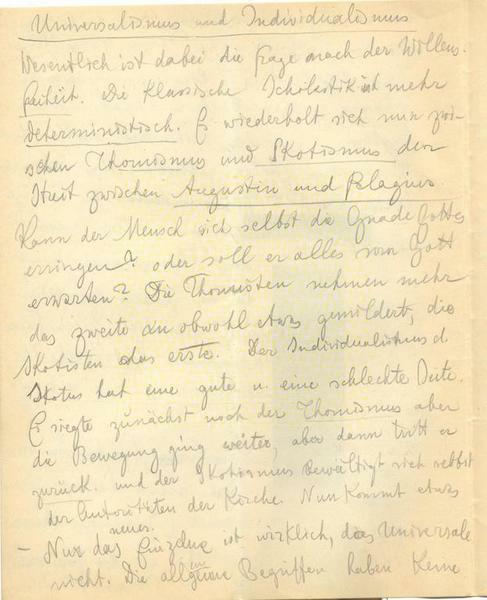 Universalismus und Individualismus
Wesentlich ist dabei die Frage nach der Willens-
freiheit. Die klassische Scholastik ist mehr
deterministisch. Es wiederholt sich nun zwi-
schen Thomismus und Skotismus der
Streit zwischen Augustin und Pelagius
Kann der Mensch sich selbst die Gnade Gottes
erringen? oder soll er alles von Gott
erwarten? Die Thomisten nehmen mehr
das zweite an obwohl etwas gemildert, die
Skotisten das erste. Der Individualismus d.
Skotus hat eine gute u. eine schlechte Seite.
Es siegte zunächst noch der Thomismus aber
die Bewegung ging weiter, aber dann tritt er
zurück. und der Skotismus bewältigt sich selbst
der Autoritäten der Kirche. Nun kommt etwas
neues.
- Nur das Einzelne ist wirklich, das Universale
nicht. Die allgemeine Begriffen haben keine